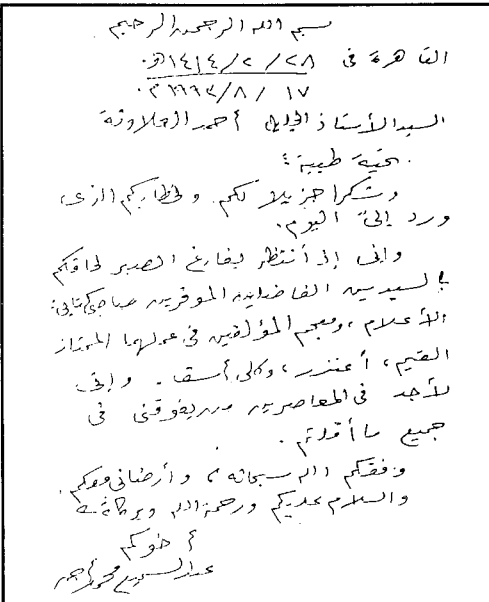 بسم الله الرحمن الرحيم
القاهرة في ٢٨/٢/١٤١٤هـ
١٧/٨/١٩٩٣م
السيد الأستاذ الجليل أحمد العلاونة
تحية طيبة :
وشكرا جزيلا لكم. ولخطابكم الذي
ورد إليّ اليوم.
وإني إذ أنتظر بفارغ الصبر لحاقكم
بالسيدين الفاضلين الموقرين صاحبي كتابي:
الأعلام، ومعجم المؤلفين في عملهما الممتاز
القيم، أعتذر، وكلي أسف. وإني
لأجد في المعاصرين من يفوقني في
جميع ما أقدم.
وفقكم الله سبحانه، وأرضاني معكم.
والسلام عليكم ورحمة الله وبركاته
أخوكم
عبد السميع محمد أحمد